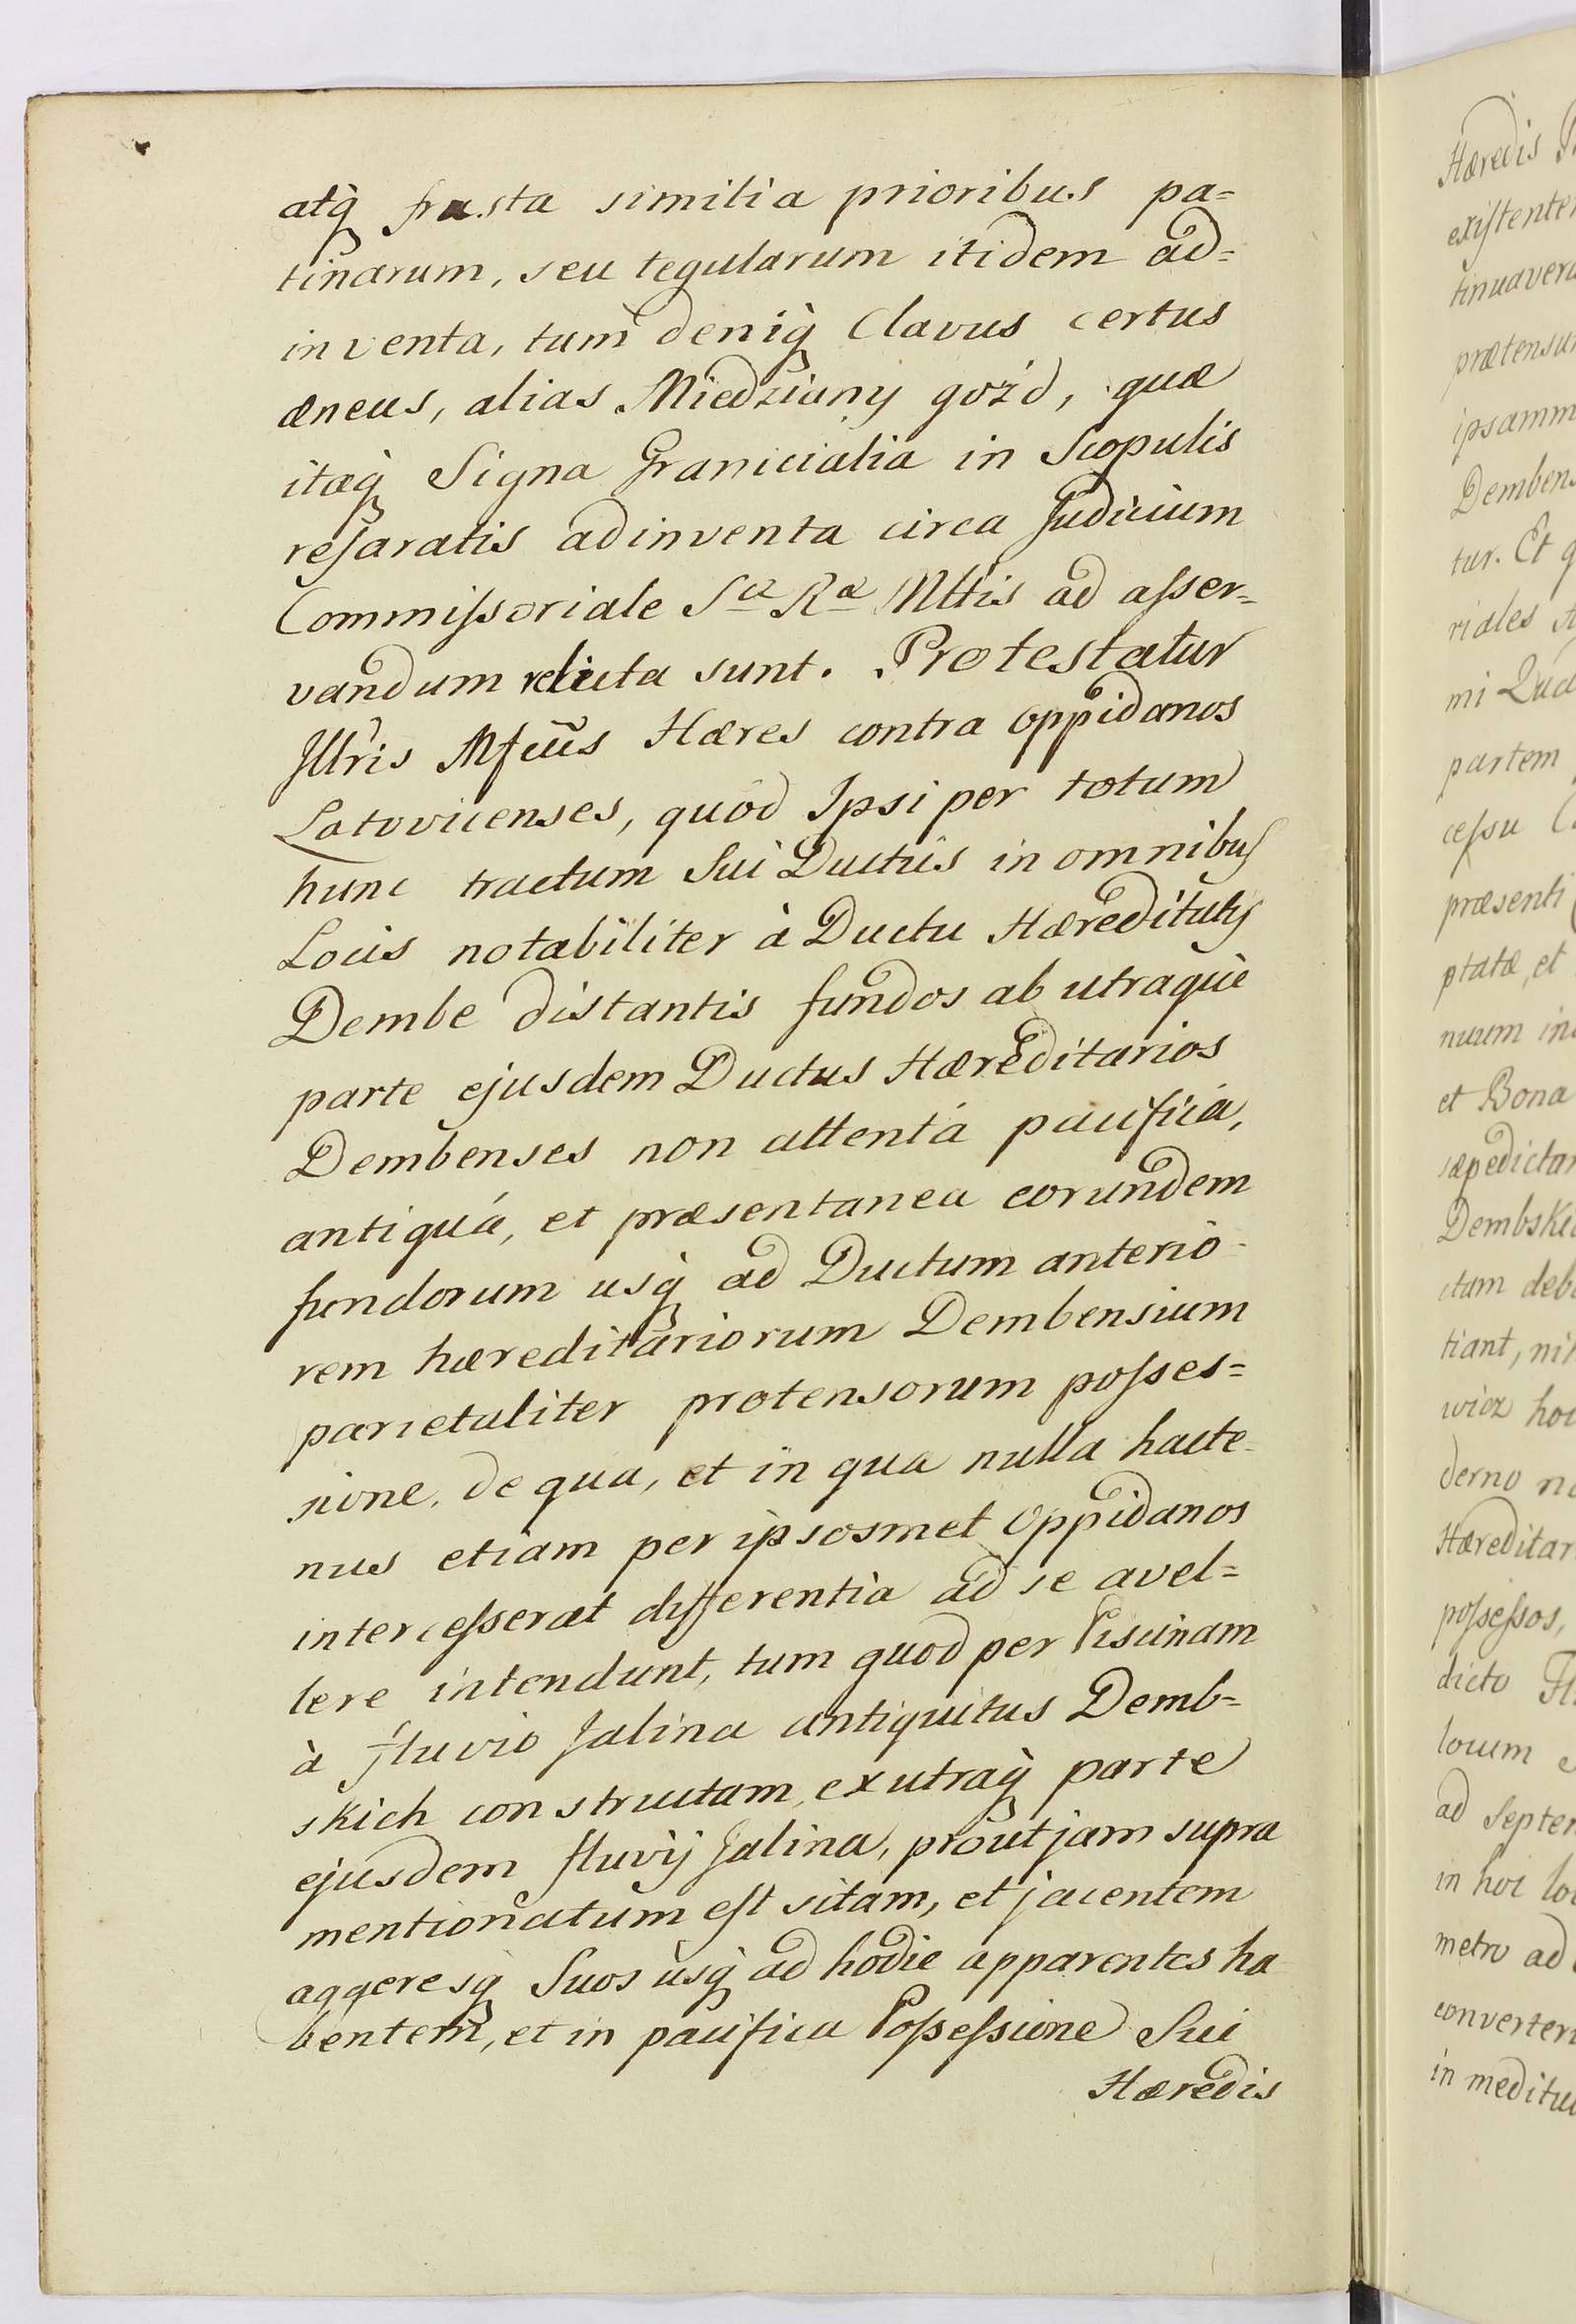 atq́ frusta similia prioribus pa=
tinarum, seu tegularum itidem ad=
inventa, tum deniq́ Clavus certus
æneus, alias Miedziany gożd, quæ
itaq́ Signa Granicialia in Scopulis
reſaratis adinventa circa Judicium
Commiſsoriale Sæ Ræ Mttis ad aſser=
vandum relicta sunt. Protestatur
Illris Mfcus Hæres contra oppidanos
Latovicenses, quod Ipsi per totum
hunc tractum Sui Ductus in omnibus
Locis notabiliter à Ductu Hæreditatis
Dembe distantis fundos ab utraque
parte ejusdem Ductus Hæreditarios
Dembenses non attentá pacificá,
antiquá, et præsentanea eorundem
fundorum usq́ ad Ductum anterio-
rem hæreditariorum Dembensium
parietaliter protensorum poſses=
sione, de qua, et in qua nulla hacte-
nus etiam per ipsosmet Oppidanos
interceſserat differentia ad se avel=
lere intendunt, tum quod per Piscinam
à fluvio Jalina antiquitus Demb=
skich constructam, ex utraq́ parte
ejusdem fluvij Jalina, prout jam supra
mentionatum eſt sitam, et jacentem
aggeresq́ Suos usq́ ad hodie apparentes ha
bentem, et in pacifica Poſseſsione Sui
Hæredis
Hæredis
existente
tinuaver
prætensu
ipsamm
Dembens
tur. Et
riales
mi
partem
ceſsu
præsenti
ptatæ, et
nuum in
et Bona
sæpedicta
Dembski
ctum deb
tiant, ni
wicz hoc
derno
Hæreditar
poſseſsos,
dicto
locum
ad Septe
in hoc lo
metro ad
converter
in meditu